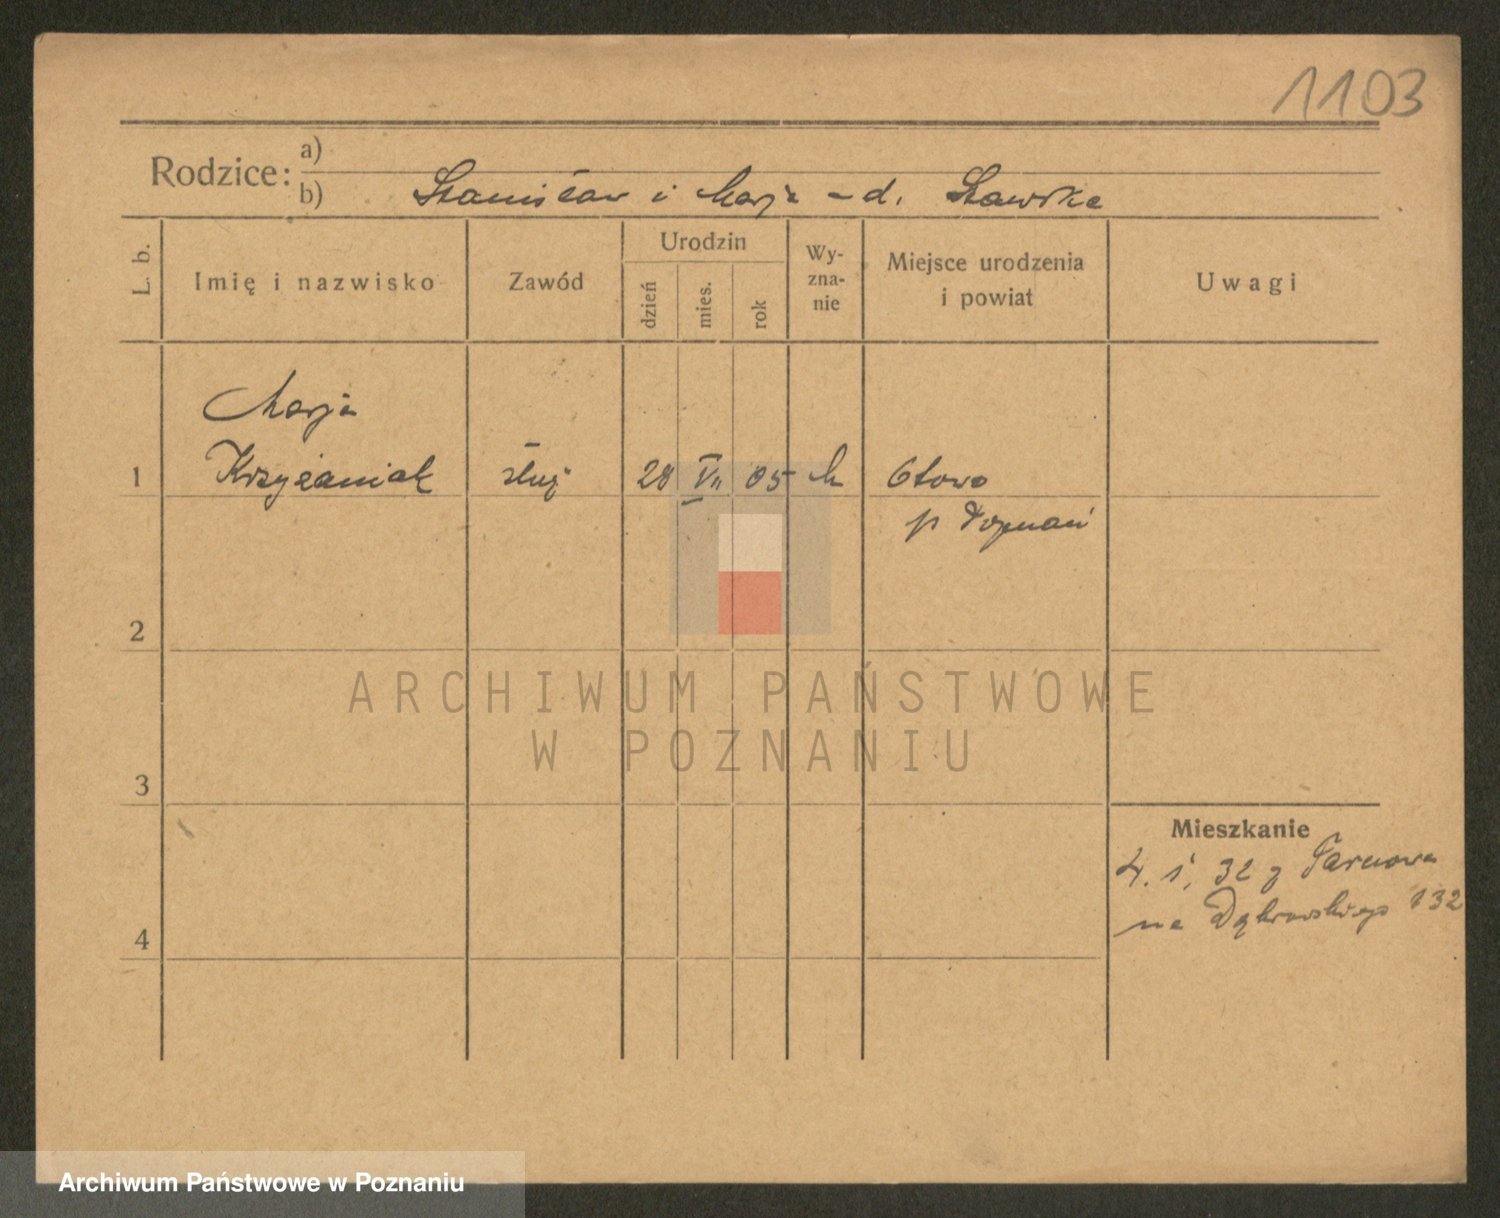 1103
Rodzice:
a)
b) Stanisław i Marja - d. Sławska
L. b.
Imię i nazwisko
Zawód
Urodzin
dzień
mies.
rok
Wy-
zna-
nie
Miejsce urodzenia
i powiat
Uwagi
Marja
1 Krzyżaniak służ 28 VII 05 k
p Poznań
2
3
4
Mieszkanie
4. 1. 32 z Tarnowa
na Dąbrowskiego 132
ARCHIWUM PAŃSTWOWE
W POZNANIU
Archiwum Państwowe w Poznaniu